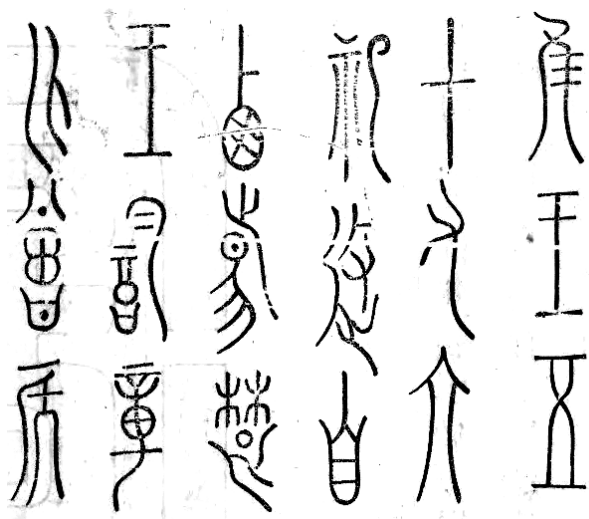 隹王五
十又六
祀返自
西𩛥楚
王酓章
乍曾侯